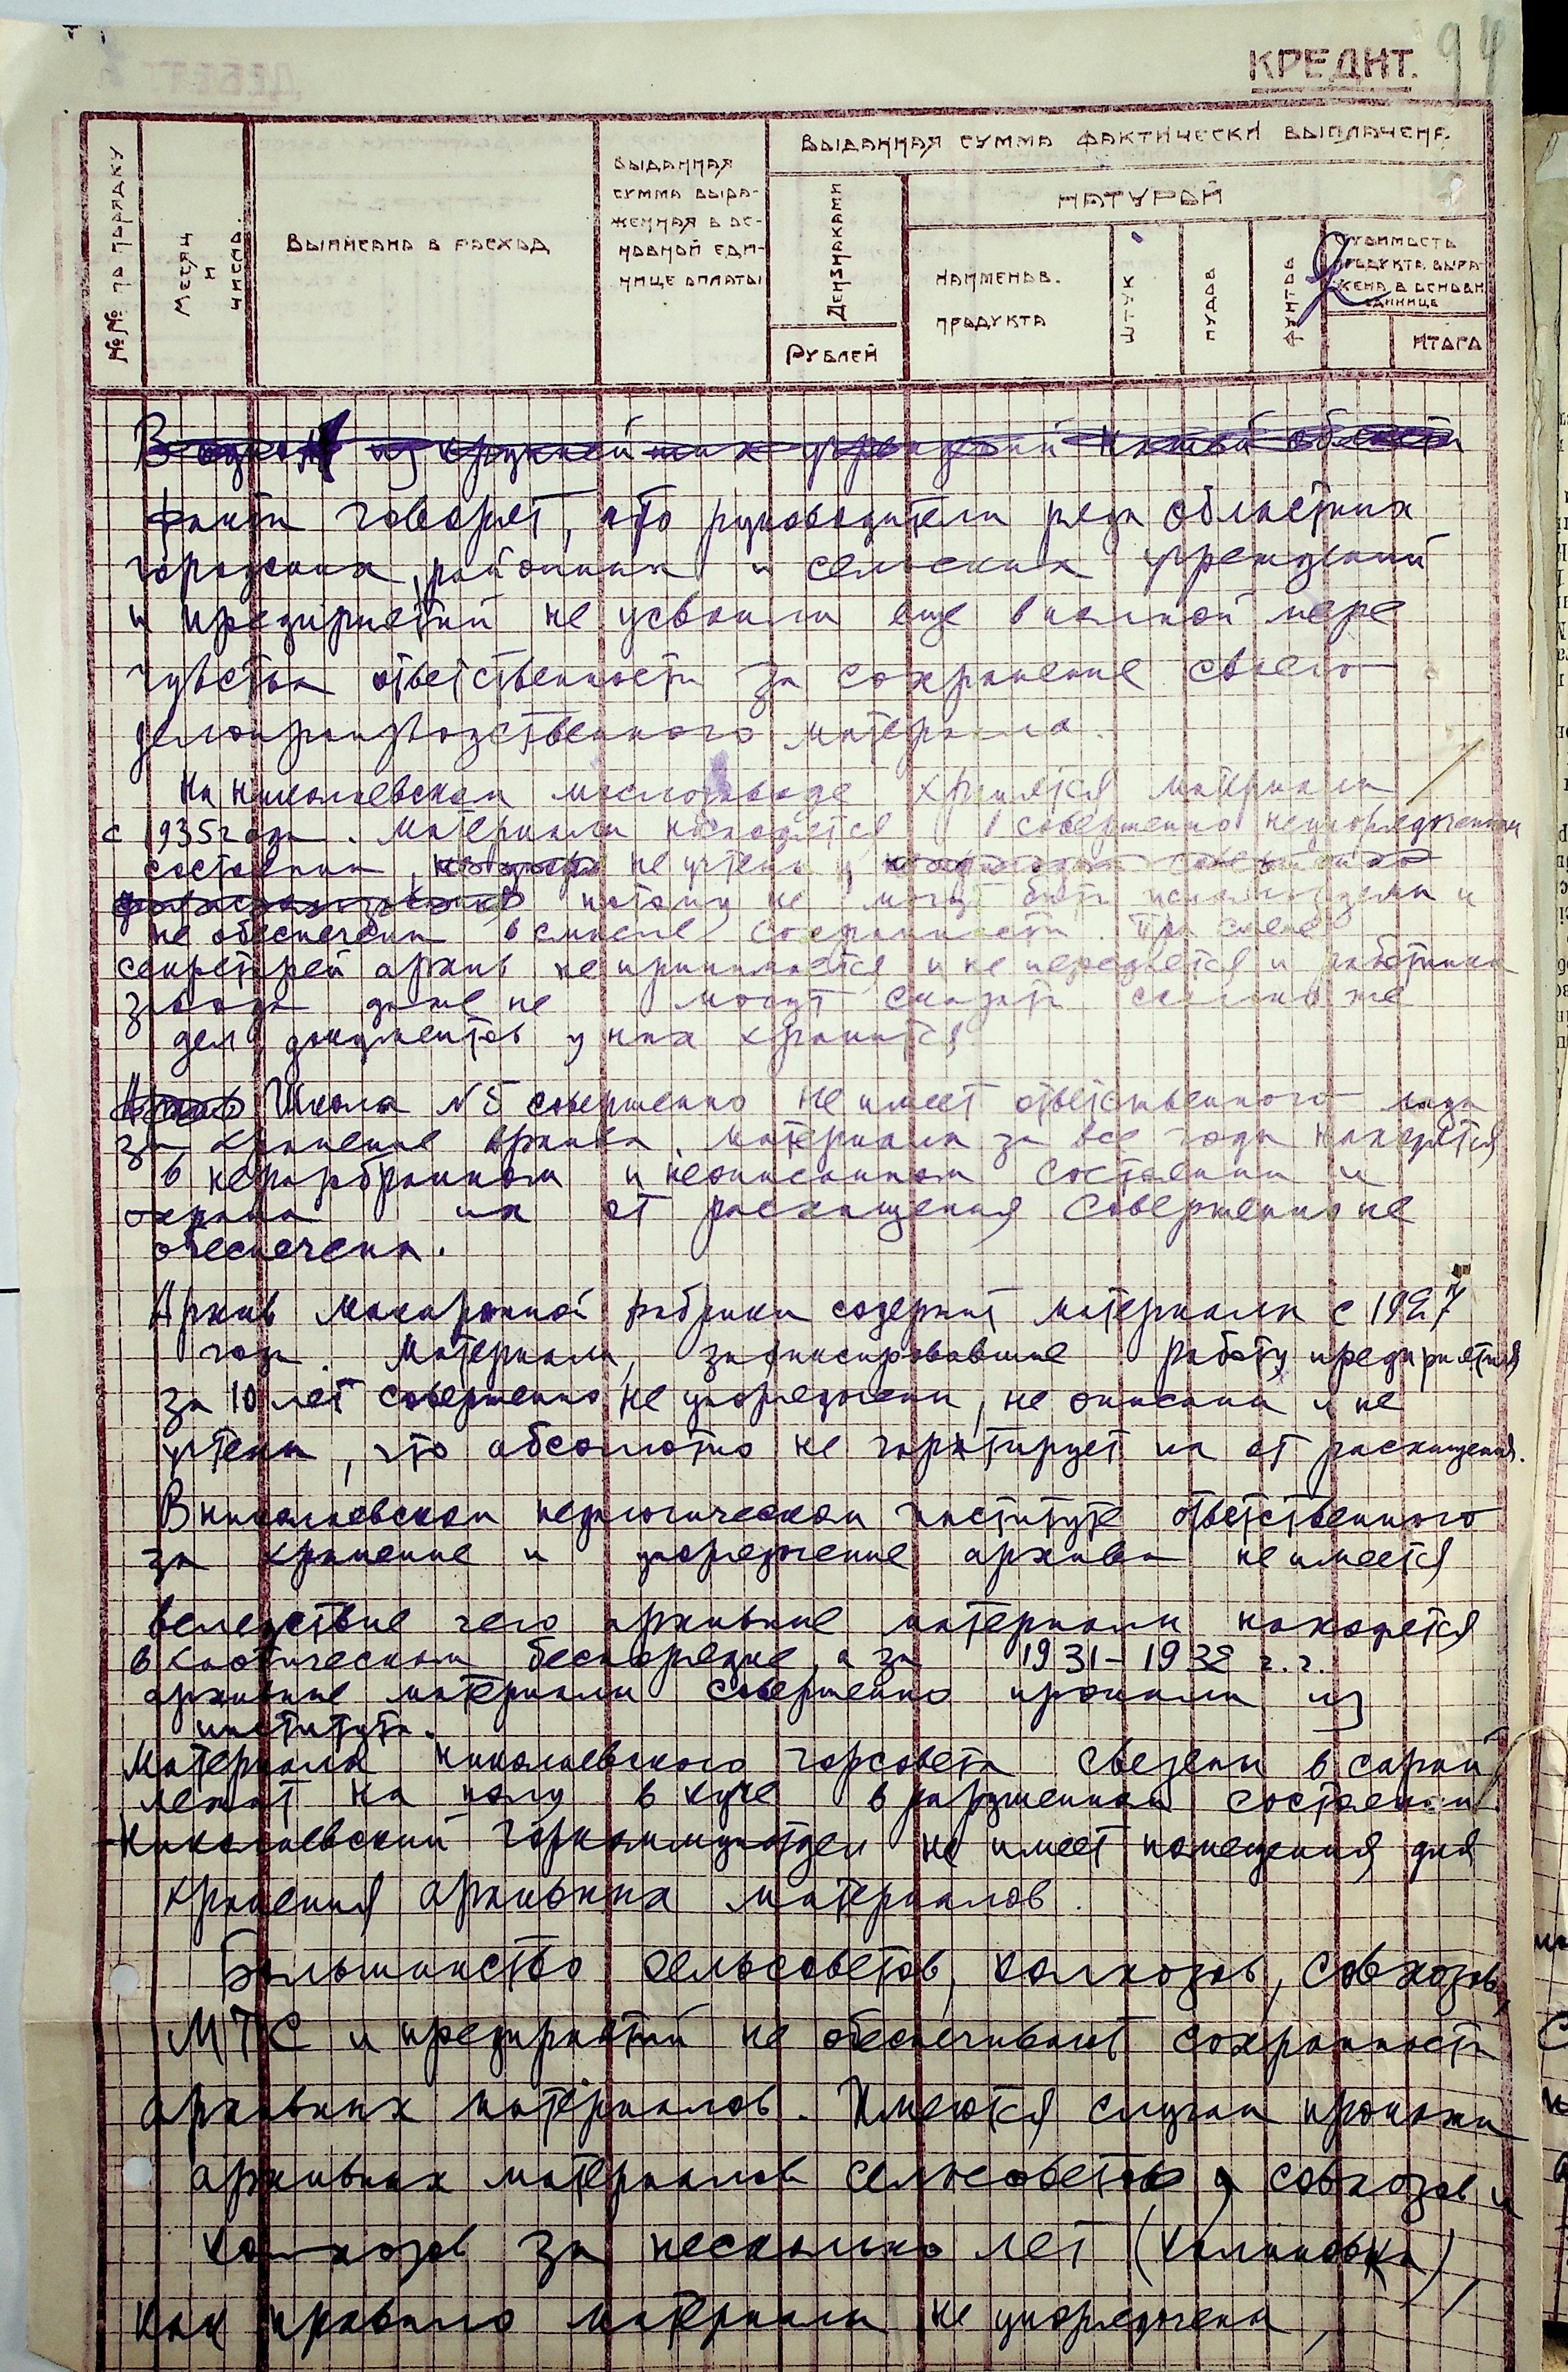 КРЕДИТ. 94
№№ по порядку
Месяц и число.
Выписано в расход
Выданная сумма выра-
женная в ос-
новной еди-
нице оплаты
Выданная сумма фактически выплачена
Дензнаками
Рублей
Натурой
Наименов.
продукта
Штук
Пудов
Фунтов
Стоимость
продукта выра-
жена в основн.
единице
Итого
2
В одном из крупнейших учреждений нашей области
факты говорят, что руководители ряда областных
городских, районных и сельских учреждений
и предприятий не усвоили еще в полной мере
чувства ответственности за сохранение своего
делопроизводственного материала.
На Николаевском маслозаводе хранятся материалы
с 1935 года. Материалы находятся в совершенно неупорядоченном
состоянии, не учтены и
потому не могут быть использованы и
не обеспечены в смысле сохранности. При смене
секретарей архив не принимается и не передается и работники
завода даже не могут сказать сколько же
дел, документов у них хранится
Архив Школа №5 совершенно не имеет ответственного лица
за хранение архива. Материалы за все года находятся
в неразобранном и неописанном состоянии и
охрана их от расхищения совершенно не
обеспечена.
Архив макаронной фабрики содержит материалы с 1927
года. Материалы, зафиксировавшие работу предприятия
за 10 лет совершенно не упорядочены, не описаны и не
учтены, что абсолютно не гарантирует их от расхищения.
В николаевском педагогическом институте ответственного
за хранение и упорядочение архива не имеется
вследствие чего архивные материалы находятся
в хаотическом беспорядке, а за 1931-1932 г.г.
архивные материалы совершенно пропали из
института.
Материалы николаевского горсовета свезены в сарай
лежат на полу в куче в разрушенном состоянии.
Николаевский Горкоммунотдел не имеет помещения для
хранения архивных материалов.
Большинство сельсоветов, колхозов, совхозов,
МТС и предприятий не обеспечивают сохранности
архивных материалов. Имеются случаи пропажи
архивных материалов сельсоветов, совхозов и
колхозов за несколько лет (Калиновка),
как правило материалы не упорядочены,